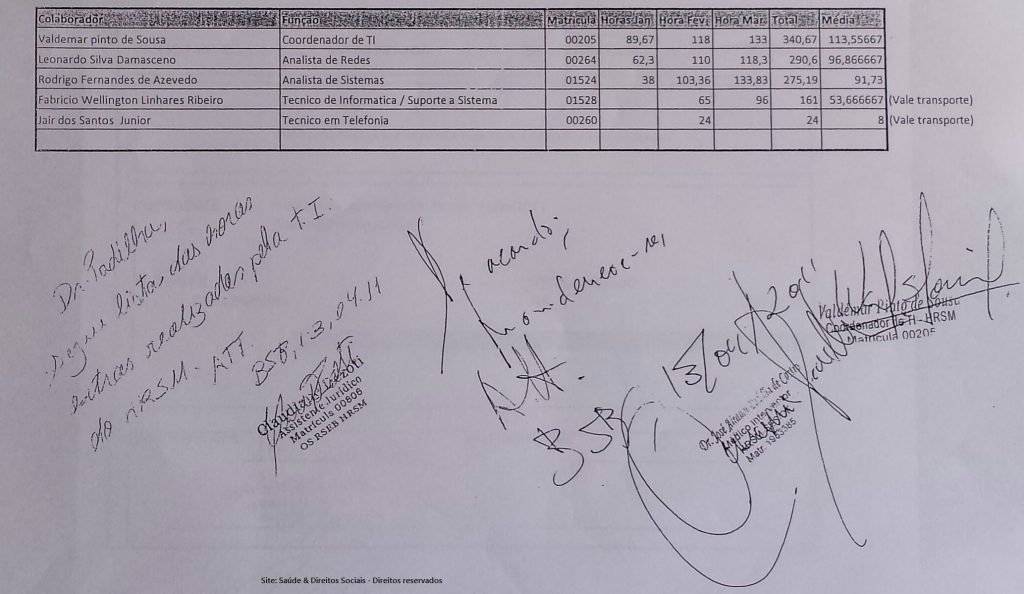 Colaborador Função Matricula Horas Jan Hora Fev. Hora Mar. Total Média
Valdemar pinto de Sousa Coordenador de TI 00205 89,67 118 133 340,67 113,55667
Leonardo Silva Damasceno Analista de Redes 00264 62,3 110 118,3 290,6 96,866667
Rodrigo Fernandes de Azevedo Analista de Sistemas 01524 38 103,36 133,83 275,19 91,73
Fabricio Wellington Linhares Ribeiro Tecnico de Informatica / Suporte a Sistema 01528 65 96 161 53,666667 (Vale transporte)
Jair dos Santos Junior Tecnico em Telefonia 00260 24 24 8 (Vale transporte)
Dr. Padilha,
segue lista das horas
extras realizadas pela T.I.
do HRSM. ATT.
BSB, 13,04.11
Assistente Jurídico
Matrícula 00606
OS RSEB HRSM
De acordo,
Att.
BSB,
Valdemar Pinto de Sousa
Coordenador de TI - HRSM
Matricula 00205
Dr. José
Médico Interventor
Matr.
Site: Saúde & Direitos Sociais - Direitos reservados